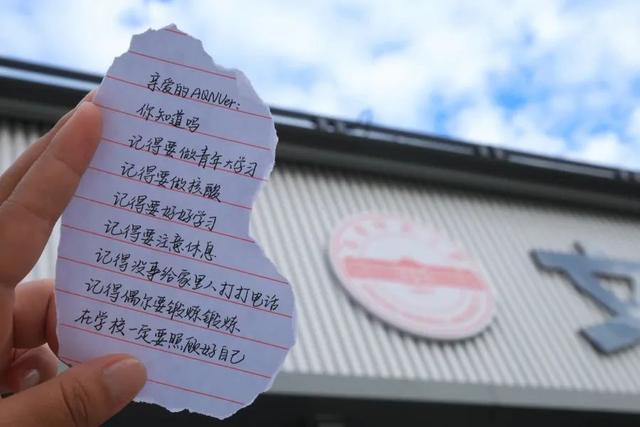 亲爱的AQNUer:
你知道吗
记得要做青年大学习
记得要做核酸
记得要好好学习
记得要注意休息
记得没事给家里人打打电话
记得偶尔要锻炼锻炼
在学校一定要照顾好自己